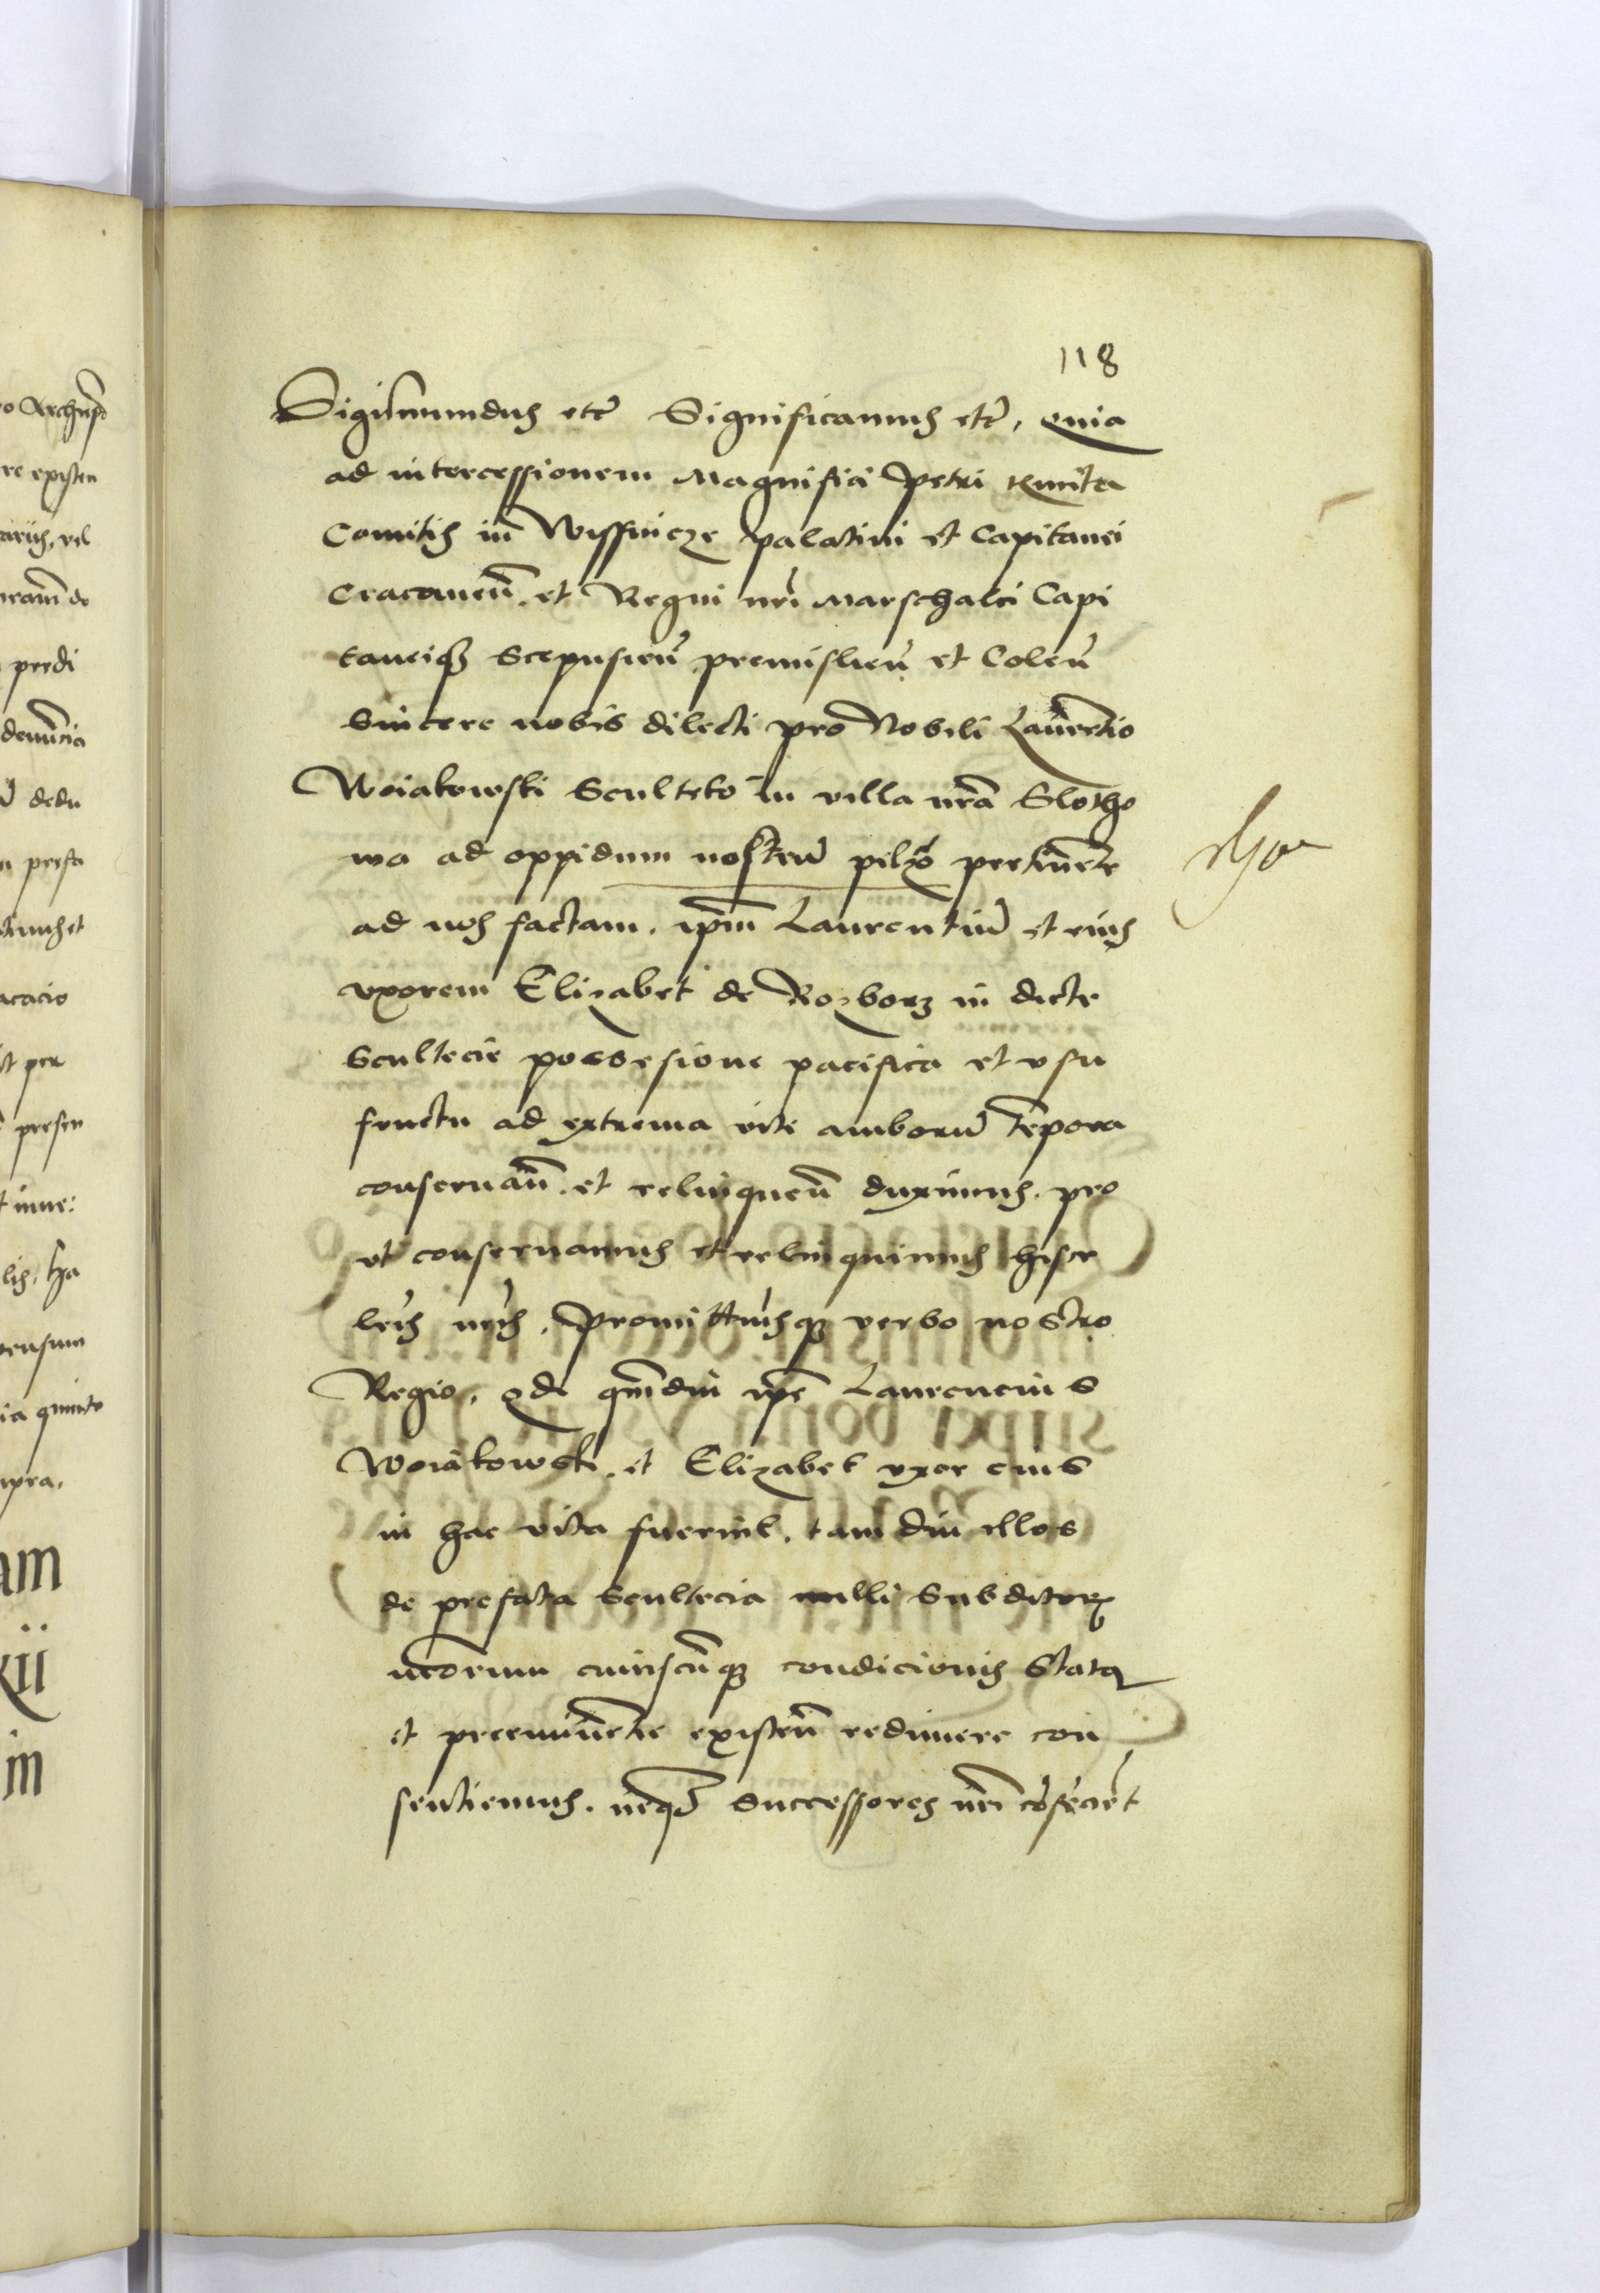 118
Sigismundus etc̄ Significamus etc̄, quia
ad intercessionem Magnifici Petri Kmita
Comitis in Wissnicze palatini et Capitanei
Cracouien̄. et Regni nr̄i Marschalci Capi
taneiq̃ Scepusien̄ premislien̄ et Colen̄
sincere nobis dilecti pro Nobili Laurentio
Woiakowski Sculteto in villa nr̄a Slotho
wa ad oppidum nostrū pilzno pertinen̄te
ad nos factam. ip̄m Laurentiū et eius
vxorem Elizabet de Rozborz in dicte
Scultecie possesione pacifica et vsu
fructu ad extrema vite amborū tēpora
conseruan̄. et relinquen̄ duximus. pro
vt conseruamus et relinquimus hisce
lr̄is nr̄is. Promittim̄usq̃ verbo nostro
Regio. qd̄ qm̄diu ip̄e Laurencius
Woiakowski. et Elizabet vxor eius
in hac vita fuerint. tam diu illos
de prefata Scultecia nulli Subditorꝝ
nr̄orum cuiuscūq̃ condicionis Statꝯ
et preeminen̄tie existen̄ redimere con
sentiemus. neqꝫ Successores nr̄i cōsencient
ro Archiep̄o
re existen
ariis, vel
perdi
denūcia
dedu
prefa
acacio
per
presen
pensum
ia quinto
upra.
am
xii
in